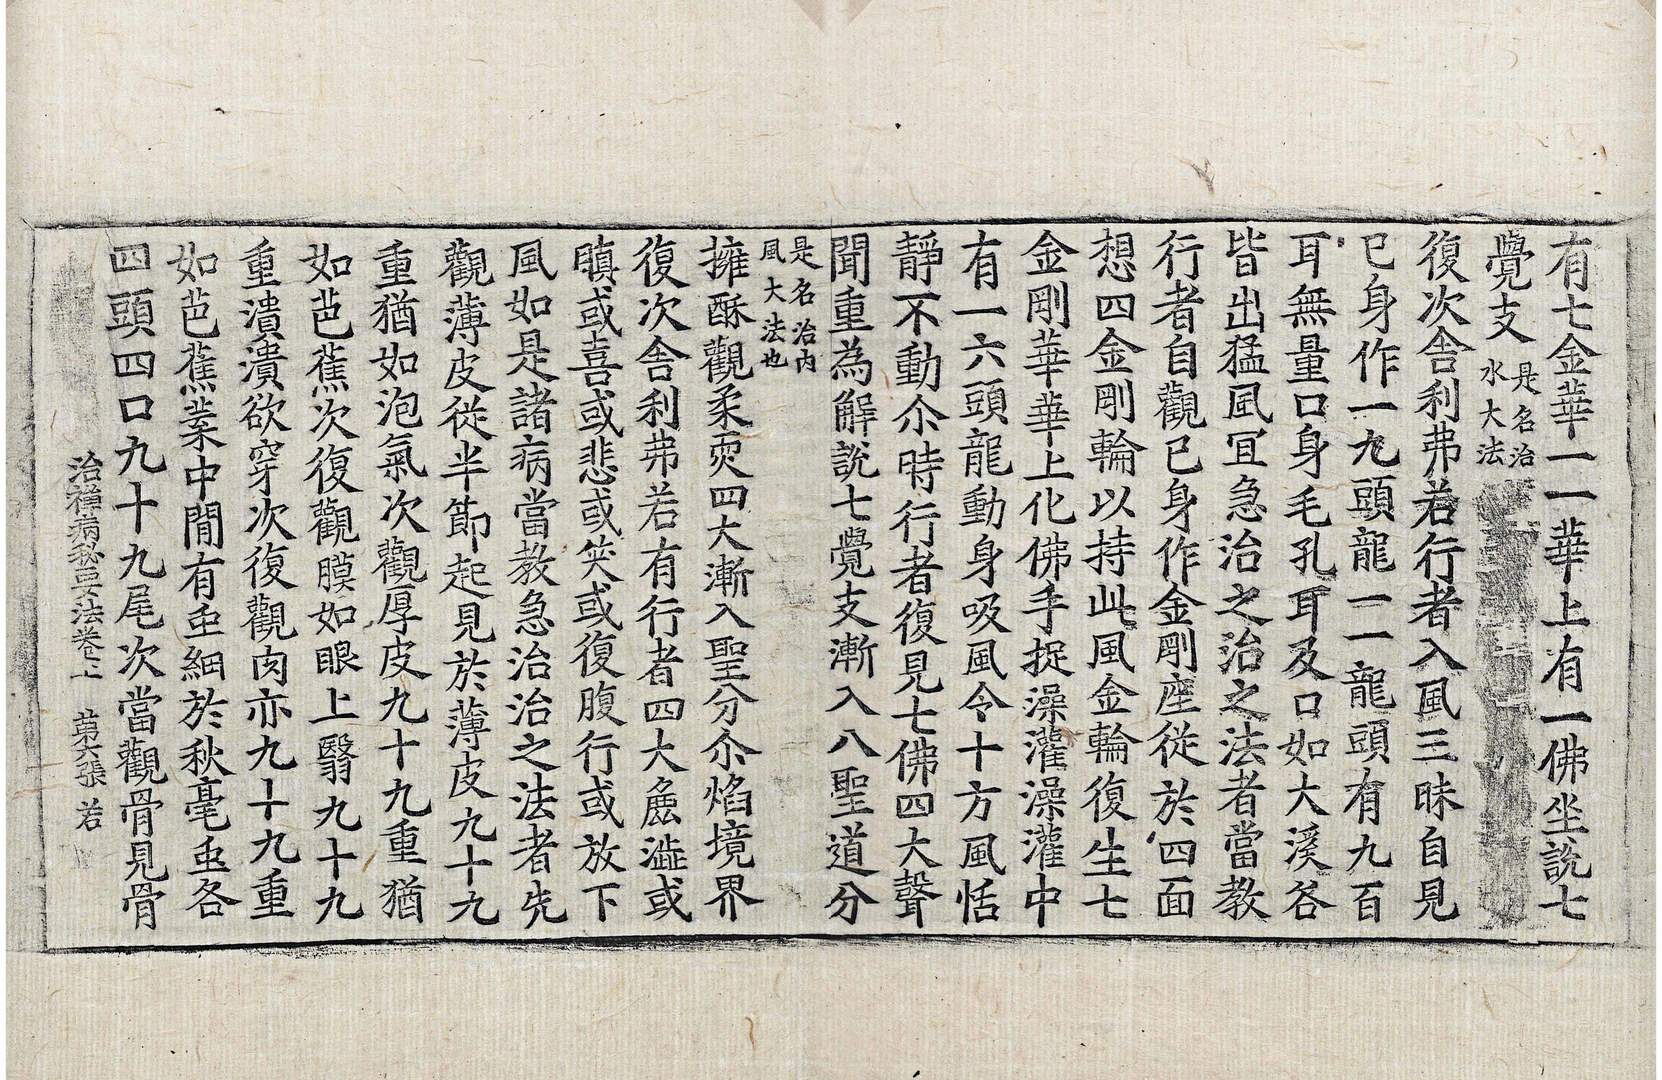 有七金華一一華上有一佛坐說七
覺支是名治水大法
復次舍利弗若行者入風三昧自見
已身作一九頭龍一一龍頭有九百
耳無量口身毛孔耳及口如大溪谷
皆出猛風冝急治之治之法者當教
行者自觀已身作金剛座從於四面
想四金剛輪以持此風金輪復生七
金剛華華上化佛手捉澡灌澡灌中
有一六頭龍動身吸風令十方風恬
靜不動尒時行者復見七佛四大聲
聞重為解說七覺支漸入八聖道分
是名治內風大法也
擁酥觀柔耎四大漸入聖分尒焰境界
復次舍利弗若有行者四大麁澁或
瞋或喜或悲或笑或復腹行或放下
風如是諸病當教急治治之法者先
觀薄皮從半節起見於薄皮九十九
重猶如泡氣次觀厚皮九十九重猶
如芭蕉次復觀膜如眼上瞖九十九
重潰潰欲穿次復觀肉亦九十九重
如芭蕉葉中間有虫細於秋毫虫各
四頭四口九十九尾次當觀骨見骨
治禪病秘要法卷上 第六張 若